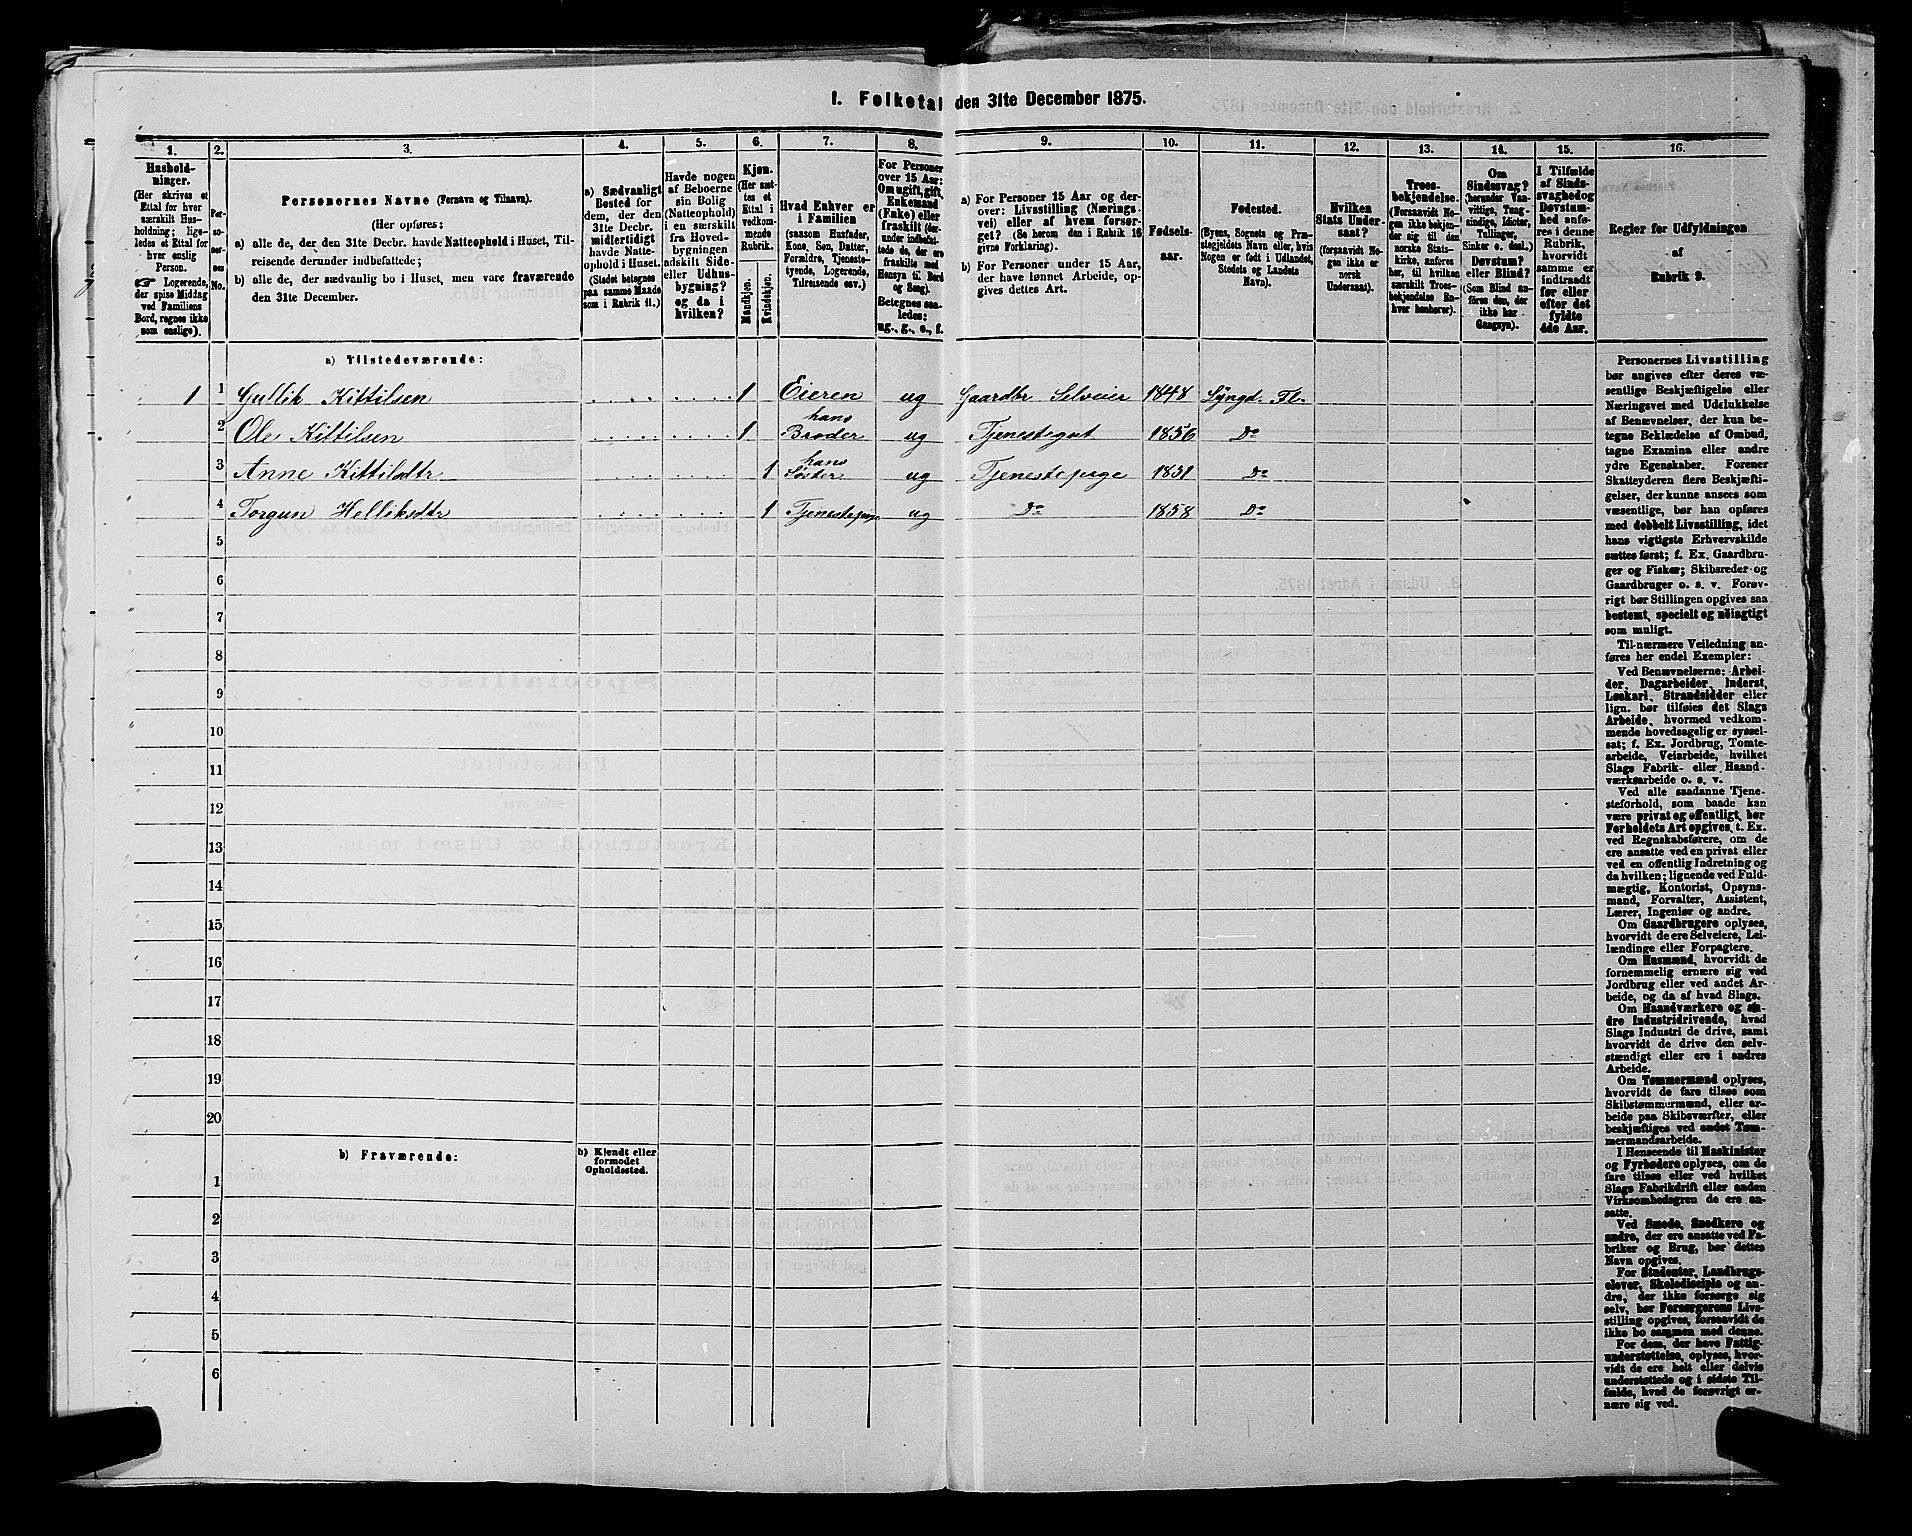 1. Folketal den 31te December 1875.
1. 2. 3. 4. 5. 6. 7. 8. 9. 10. 11. 12. 13. 14. 15. 16.
Hushold-
ninger.
(Her skrives et
Ettal for hver
særskilt Hus-
holdning; lige-
ledes et Ettal for
hver enslig
Person.
Logerende,
der spise Middag
ved Familiens
Bord, regnes ikke
som enslige).
Per-
so-
ner-
nes
No.
Personernes Navne (Fornavn og Tilnavn).
(Her opføres:
a) alle de, der den 31te Decbr. havde Natteophold i Huset, Til-
reisende derunder indbefattede;
b) alle de, der sædvanlig bo i Huset, men vare fraværende
den 31te December.
a) Sædvanligt
Bosted for
dem, der den
31te Decbr.
midlertidigt
havde Natte-
ophold i Huset.
(Stedet betegnes
paa samme Maade
som i Rubrik 11.)
Havde nogen
af Beboerne
sin Bolig
(Natteophold)
i en særskilt
fra Hoved-
bygningen
adskilt Side-
eller Udhus-
bygning?
og da i
hvilken?
Kjøn.
(Her sæt-
tes et
Ettal i
vedkom-
mende
Rubrik.
Mandkjøn.
Kvindekjøn.
Hvad Enhver er
i Familien
(saasom Husfader,
Kone, Søn, Datter,
Forældre, Tjeneste-
tyende, Logerende,
Tilreisende osv.)
For Personer
over 15 Aar:
Om ugift, gift,
Enkemand
(Enke) eller
fraskilt (der-
under indbefat-
tede de, der ere
fraskilte med
Hensyn til Bord
og Seng).
Betegnes saa-
ledes:
ug., g., e., f.
a) For Personer 15 Aar og der-
over: Livsstilling (Nærings-
vei) eller af hvem forsør-
get? (Se herom den i Rubrik 16
givne Forklaring).
b) For Personer under 15 Aar,
der have lønnet Arbeide, op-
gives dettes Art.
Fødsels-
aar.
Fødested.
(Byens, Sognets og Præ-
stegjeldets Navn eller, hvis
Nogen er født i Udlandet,
Stedets og Landets
Navn).
Hvilken
Stats Under-
saat?
(forsaavidt No-
gen ikke er
norsk
Undersaat).
Troes-
bekjendelse.
(Forsaavidt No-
gen ikke bekjen-
der sig til den
norske Stats-
kirke, anføres
her, til hvilken
særskilt Troes-
bekjendelse En-
hver henhører).
Om
Sindssvag?
(herunder Van-
vittige, Tung-
sindige, Idioter,
Tullinger,
Sinker o. desl.)
Døvstum?
eller Blind?
(Som Blind an-
føres den, der
ikke har
Gangsyn).
I Tilfælde
af Sinds-
svaghed og
Døvstum-
hed anfø-
res i denne
Rubrik,
hvorvidt
samme er
indtraadt
før eller
efter det
fyldte
4de Aar.
Regler for Udfyldningen
af
Rubrik 9.
a) Tilstedeværende:
1 1 Gullik Kittilsen 1 Eieren ug Gaardbr Selveier 1848 Lyngd. Fl.
2 Ole Kittilsen 1 hans Broder ug Tjenestegut 1856 Do
3 Anne Kittilsdtr. 1 hans Søster ug Tjenestepige 1851 Do
4 Torgun Helliksdtr 1 Tjenestepige ug Do 1858 Do
5
6
7
8
9
10
11
12
13
14
15
16
17
18
19
20
b) Fraværende:
b) Kjendt eller
formodet
Opholdssted.
1
2
3
4
5
6
Personernes Livsstilling
bør angives efter deres væ-
sentlige Beskjæftigelse eller
Næringsvei med Udelukkelse
af Benævnelser, der kun be-
tegne Beklædelse af Ombud,
tagne Examina eller andre
ydre Egenskaber. Forener
Skatteyderen flere Beskjæfti-
gelser, der kunne ansees som
væsentlige, bør han opføres
med dobbelt Livsstilling, idet
hans vigtigste Erhvervskilde
sættes først; f. Ex. Gaardbru-
ger og Fisker; Skibsreder og
Gaardbruger o. s. v. Forøv-
rigt bør Stillingen opgives saa
bestemt, specielt og nøiagtigt
som muligt.
Til nærmere Veiledning an-
føres her endel Exempler:
Ved Benævnelserne: Arbei-
der, Dagarbeider, Inderst,
Løskarl, Strandsidder eller
lign. bør tilføies det Slags
Arbeide, hvormed vedkom-
mende hovedsagelig er syssel-
sat; f. Ex. Jordbrug, Tomte-
arbeide, Veiarbeide, hvilket
Slags Fabrik- eller Haand-
værksarbeide o. s. v.
Ved alle saadanne Tjene-
steforhold, som baade kan
være privat og offentligt, bør
Forholdets Art opgives, t. Ex.
ved Regnskabsførere, om de
ere ansatte ved en privat eller
ved en offentlig Indretning og
da hvilken; lignende ved Fuld-
mægtig, Kontorist, Opsyns-
mand, Forvalter, Assistent,
Lærer, Ingeniør og andre.
Om Gaardbrugere oplyses,
hvorvidt de ere Selveiere, Lei-
lændinge eller Forpagtere.
Om Husmænd, hvorvidt de
fornemmelig ernære sig ved
Jordbrug eller ved andet Ar-
beide, og da af hvad Slags.
Om Haandværkere og an-
dre Industridrivende, hvad
Slags Industri de drive, samt
hvorvidt de drive den selv-
stændigt eller ere i andres
Arbeide.
Om Tømmermænd oplyses,
hvorvidt de fare tilsøs som
Skibstømmermænd, eller ar-
beide paa Skibsværfter, eller
beskjæftiges ved andet Tøm-
mermandsarbeide.
I Henseende til Maskinister
og Fyrbødere oplyses, om de
fare tilsøs eller ved hvilket
Slags Fabrikdrift eller anden
Virksomhedsgren de ere an-
satte.
Ved Smede, Snedkere og
andre, der ere ansatte ved Fa-
briker og Brug, bør dettes
Navn opgives.
For Studenter, Landbrugs-
elever, Skoledisciple og an-
dre, der ikke forsørge sig
selv, bør Forsørgerens Livs-
stilling opgives, forsaavidt de
ikke bo sammen med denne.
For dem, der have Fattig-
understøttelse, oplyses, hvor-
vidt de ere helt eller delvis
understøttede og i sidste Til-
fælde, hvad de forøvrigt er-
nære sig ved.